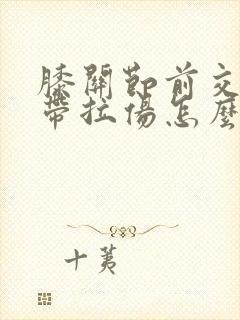 膝關節前交
帶拉傷怎麼
十荑